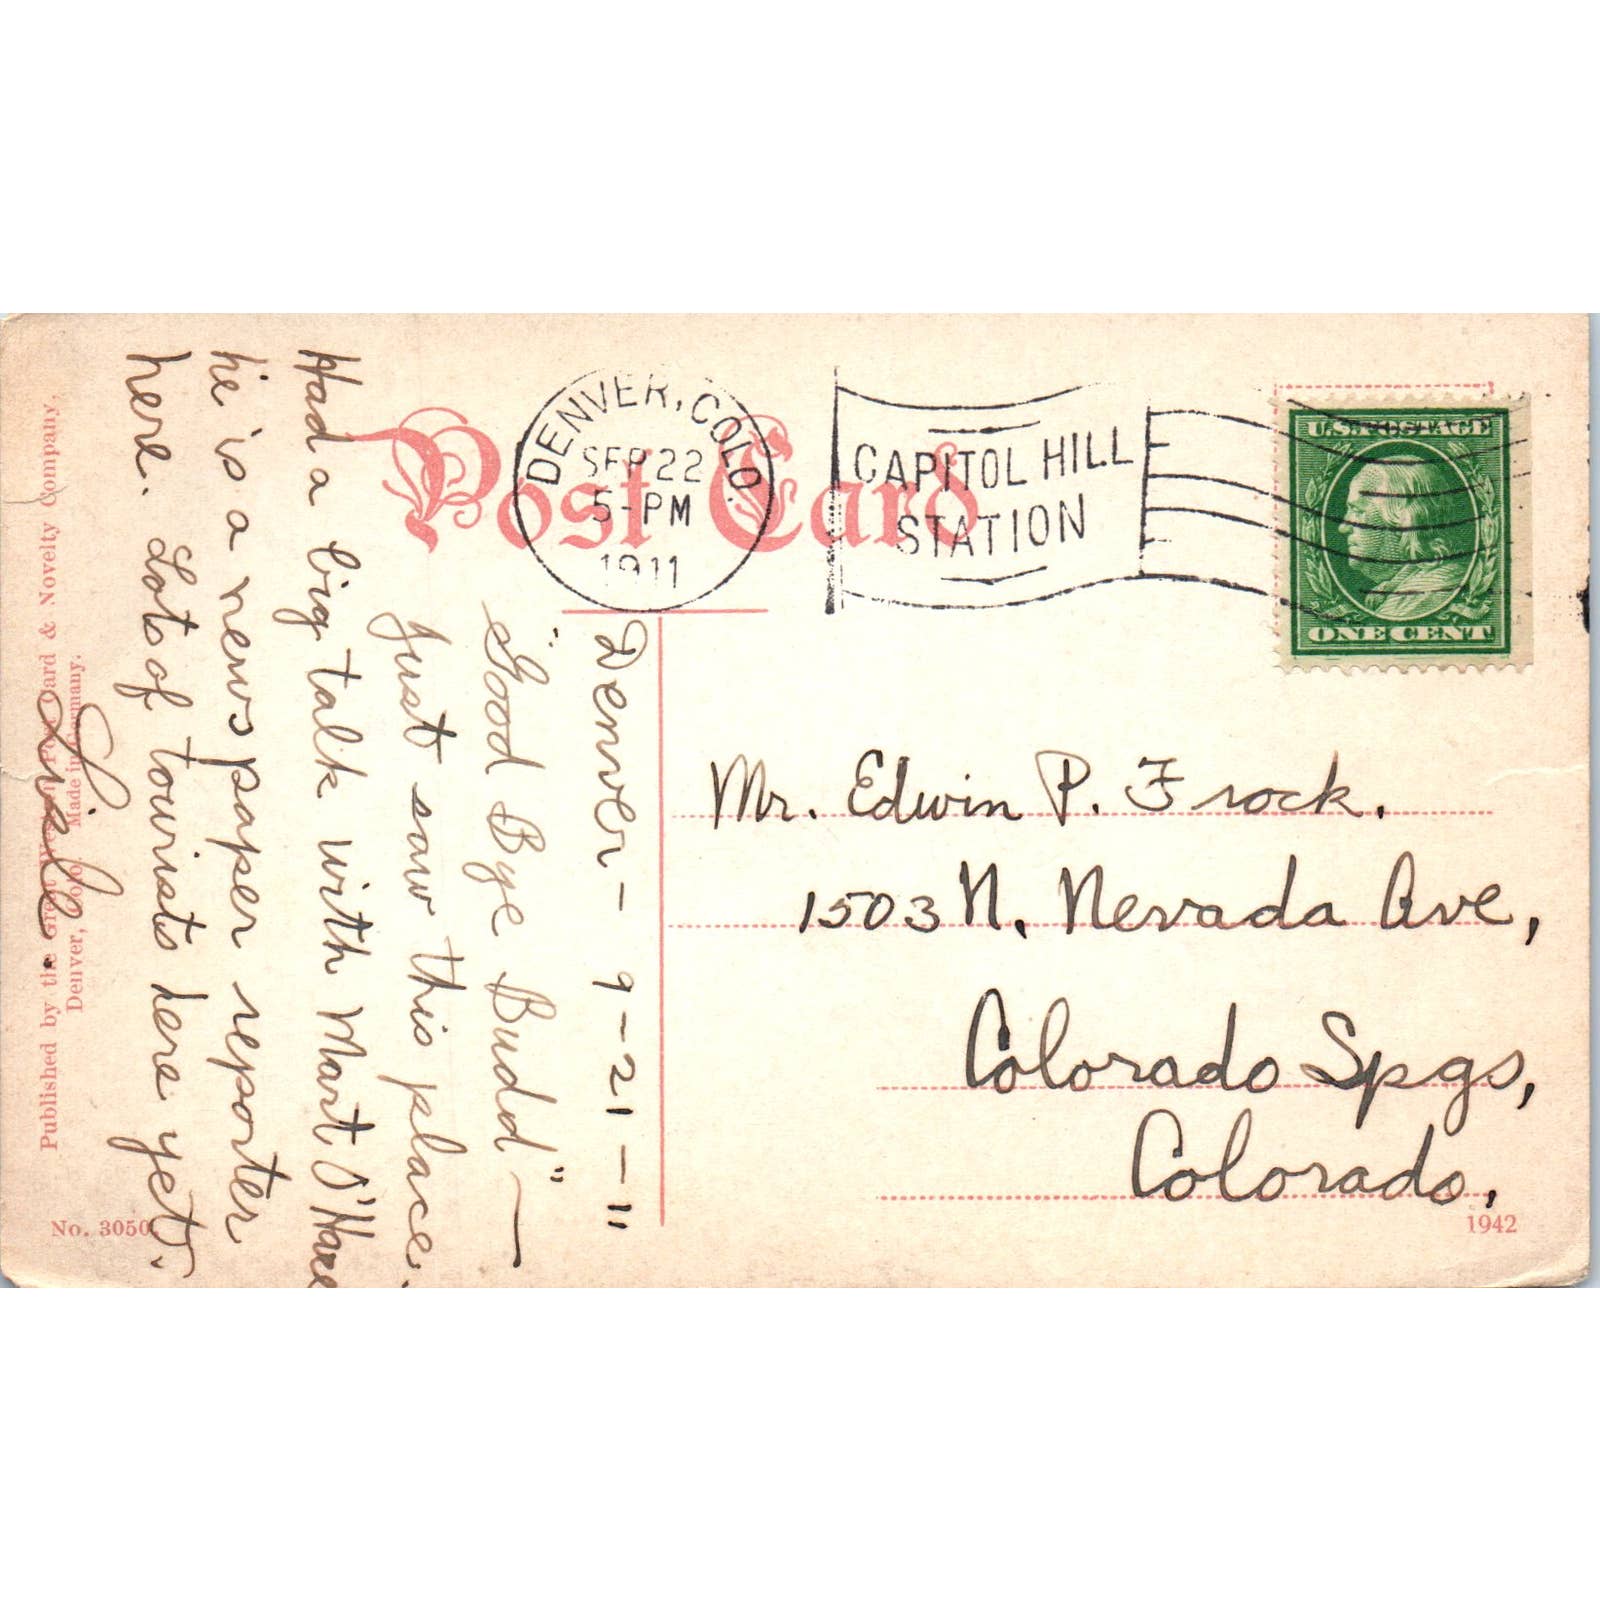 Post Card
DENVER, COLO.
SEP 22
5-PM
1911
CAPITOL HILL
STATION
U.S. POSTAGE
ONE CENT
Denver - 9-21-11
"Good Bye Budd" -
Just saw this place.
Had a big talk with Mart O'Hare
he is a newspaper reporter
here. Lots of tourists here yet.
Mr. Edwin P. Frock.
1503 N. Nevada Ave,
Colorado Spgs,
Colorado.
Published by the Great Western Post Card & Novelty Company,
Denver, Colo. Made in Germany.
No. 3050
1942